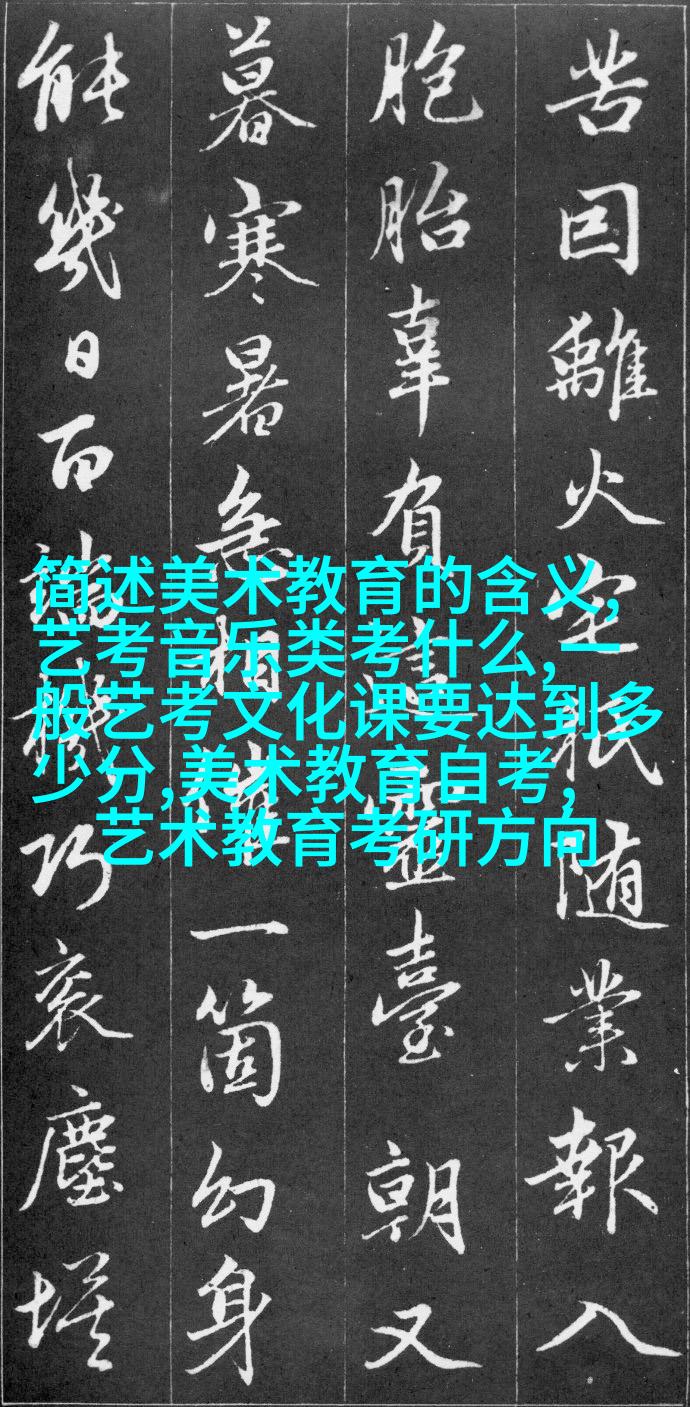 苦囙離火随業報入
胞胎辜負靈臺朝又
暮寒暑急相一箇幻身
能幾日百機巧衮塵埃
简述美术教育的含义,
艺考音乐类考什么,一
般艺考文化课要达到多
少分,美术教育自考,
艺术教育考研方向